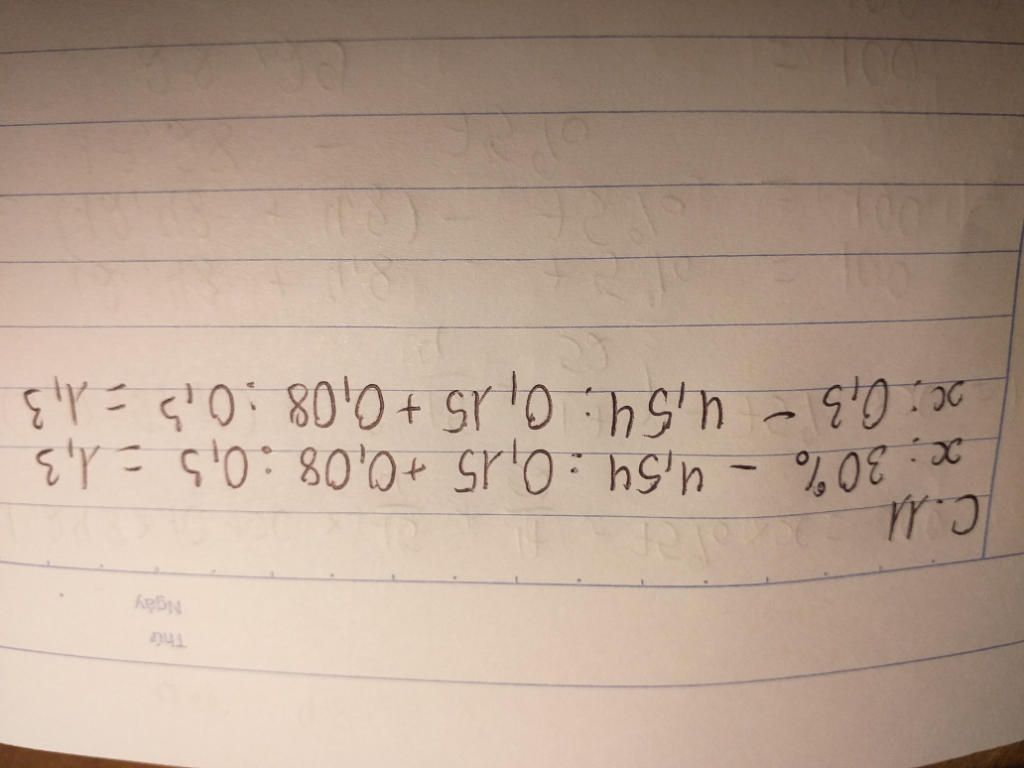 Thứ
Ngày
C.11
x : 30% - 4,54 : 0,15 + 0,08 : 0,5 = 1,3
x : 0,3 - 4,54 : 0,15 + 0,08 : 0,5 = 1,3